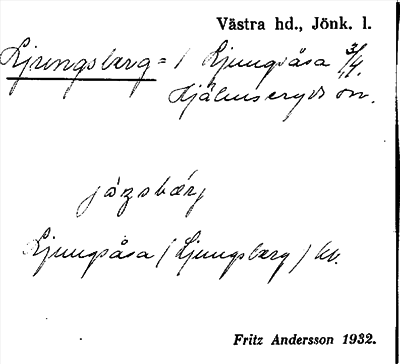 Västra hd., Jönk. l.
Ljungsberg = / Ljungsåsa 3/4.
Hjälmseryds sn.
jòzsbǽrj
Ljungsåsa / Ljungsberg / hn.
Fritz Andersson 1932.